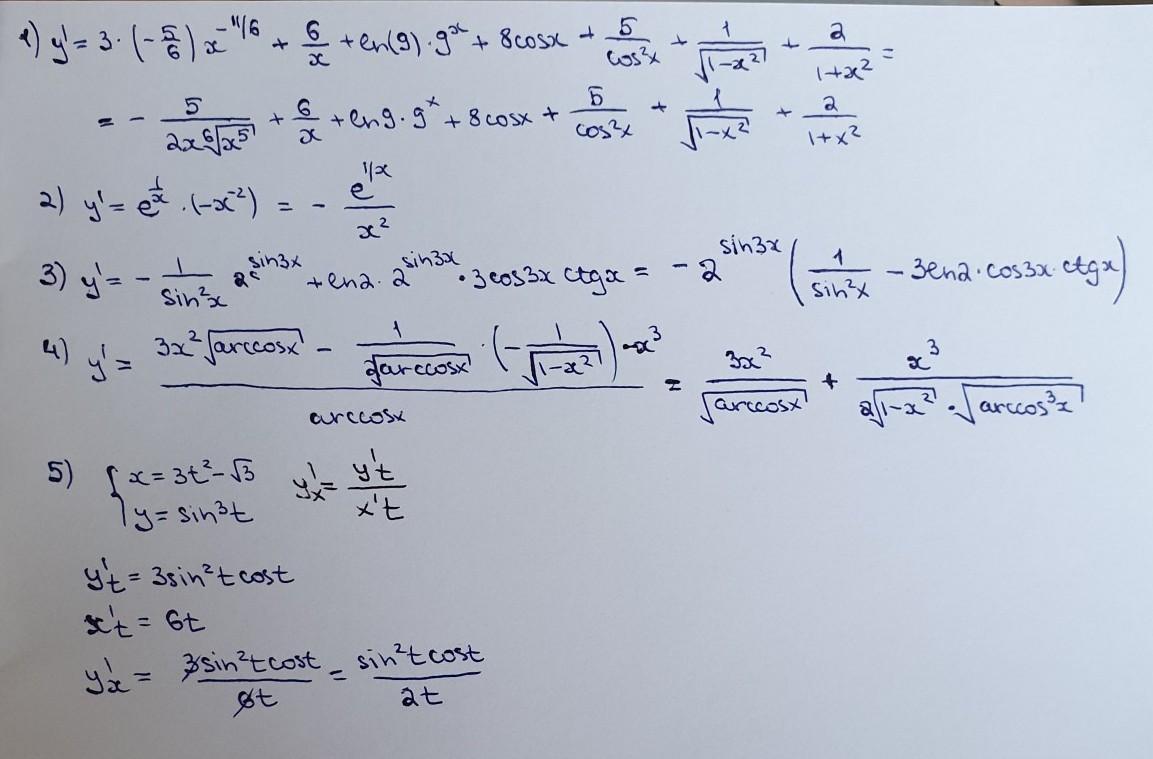 1) y' = 3·(-5/6) x^(-11/6) + 6/x + ln(9)·9^x + 8cosx + 5/cos²x + 1/√(1-x²) + 2/(1+x²) =
= - 5/(2x ⁶√(x⁵)) + 6/x + ln9·9^x + 8cosx + 5/cos²x + 1/√(1-x²) + 2/(1+x²)
2) y' = e^(1/x) · (-x^(-2)) = - e^(1/x)/x²
3) y' = - 1/sin²x 2^(sin3x) + ln2·2^(sin3x)·3cos3x ctgx = - 2^(sin3x) (1/sin²x - 3ln2·cos3x·ctgx)
4) y' = (3x²√(arccosx) - 1/(2√(arccosx)) · (- 1/√(1-x²))·x³)/arccosx = 3x²/√(arccosx) + x³/(2√(1-x²)·√(arccos³x))
5) { x = 3t² - √3 y'x = y't/x't
y = sin³t
y't = 3sin²t cost
x't = 6t
y'x = 3sin²t cost/6t = sin²t cost/2t